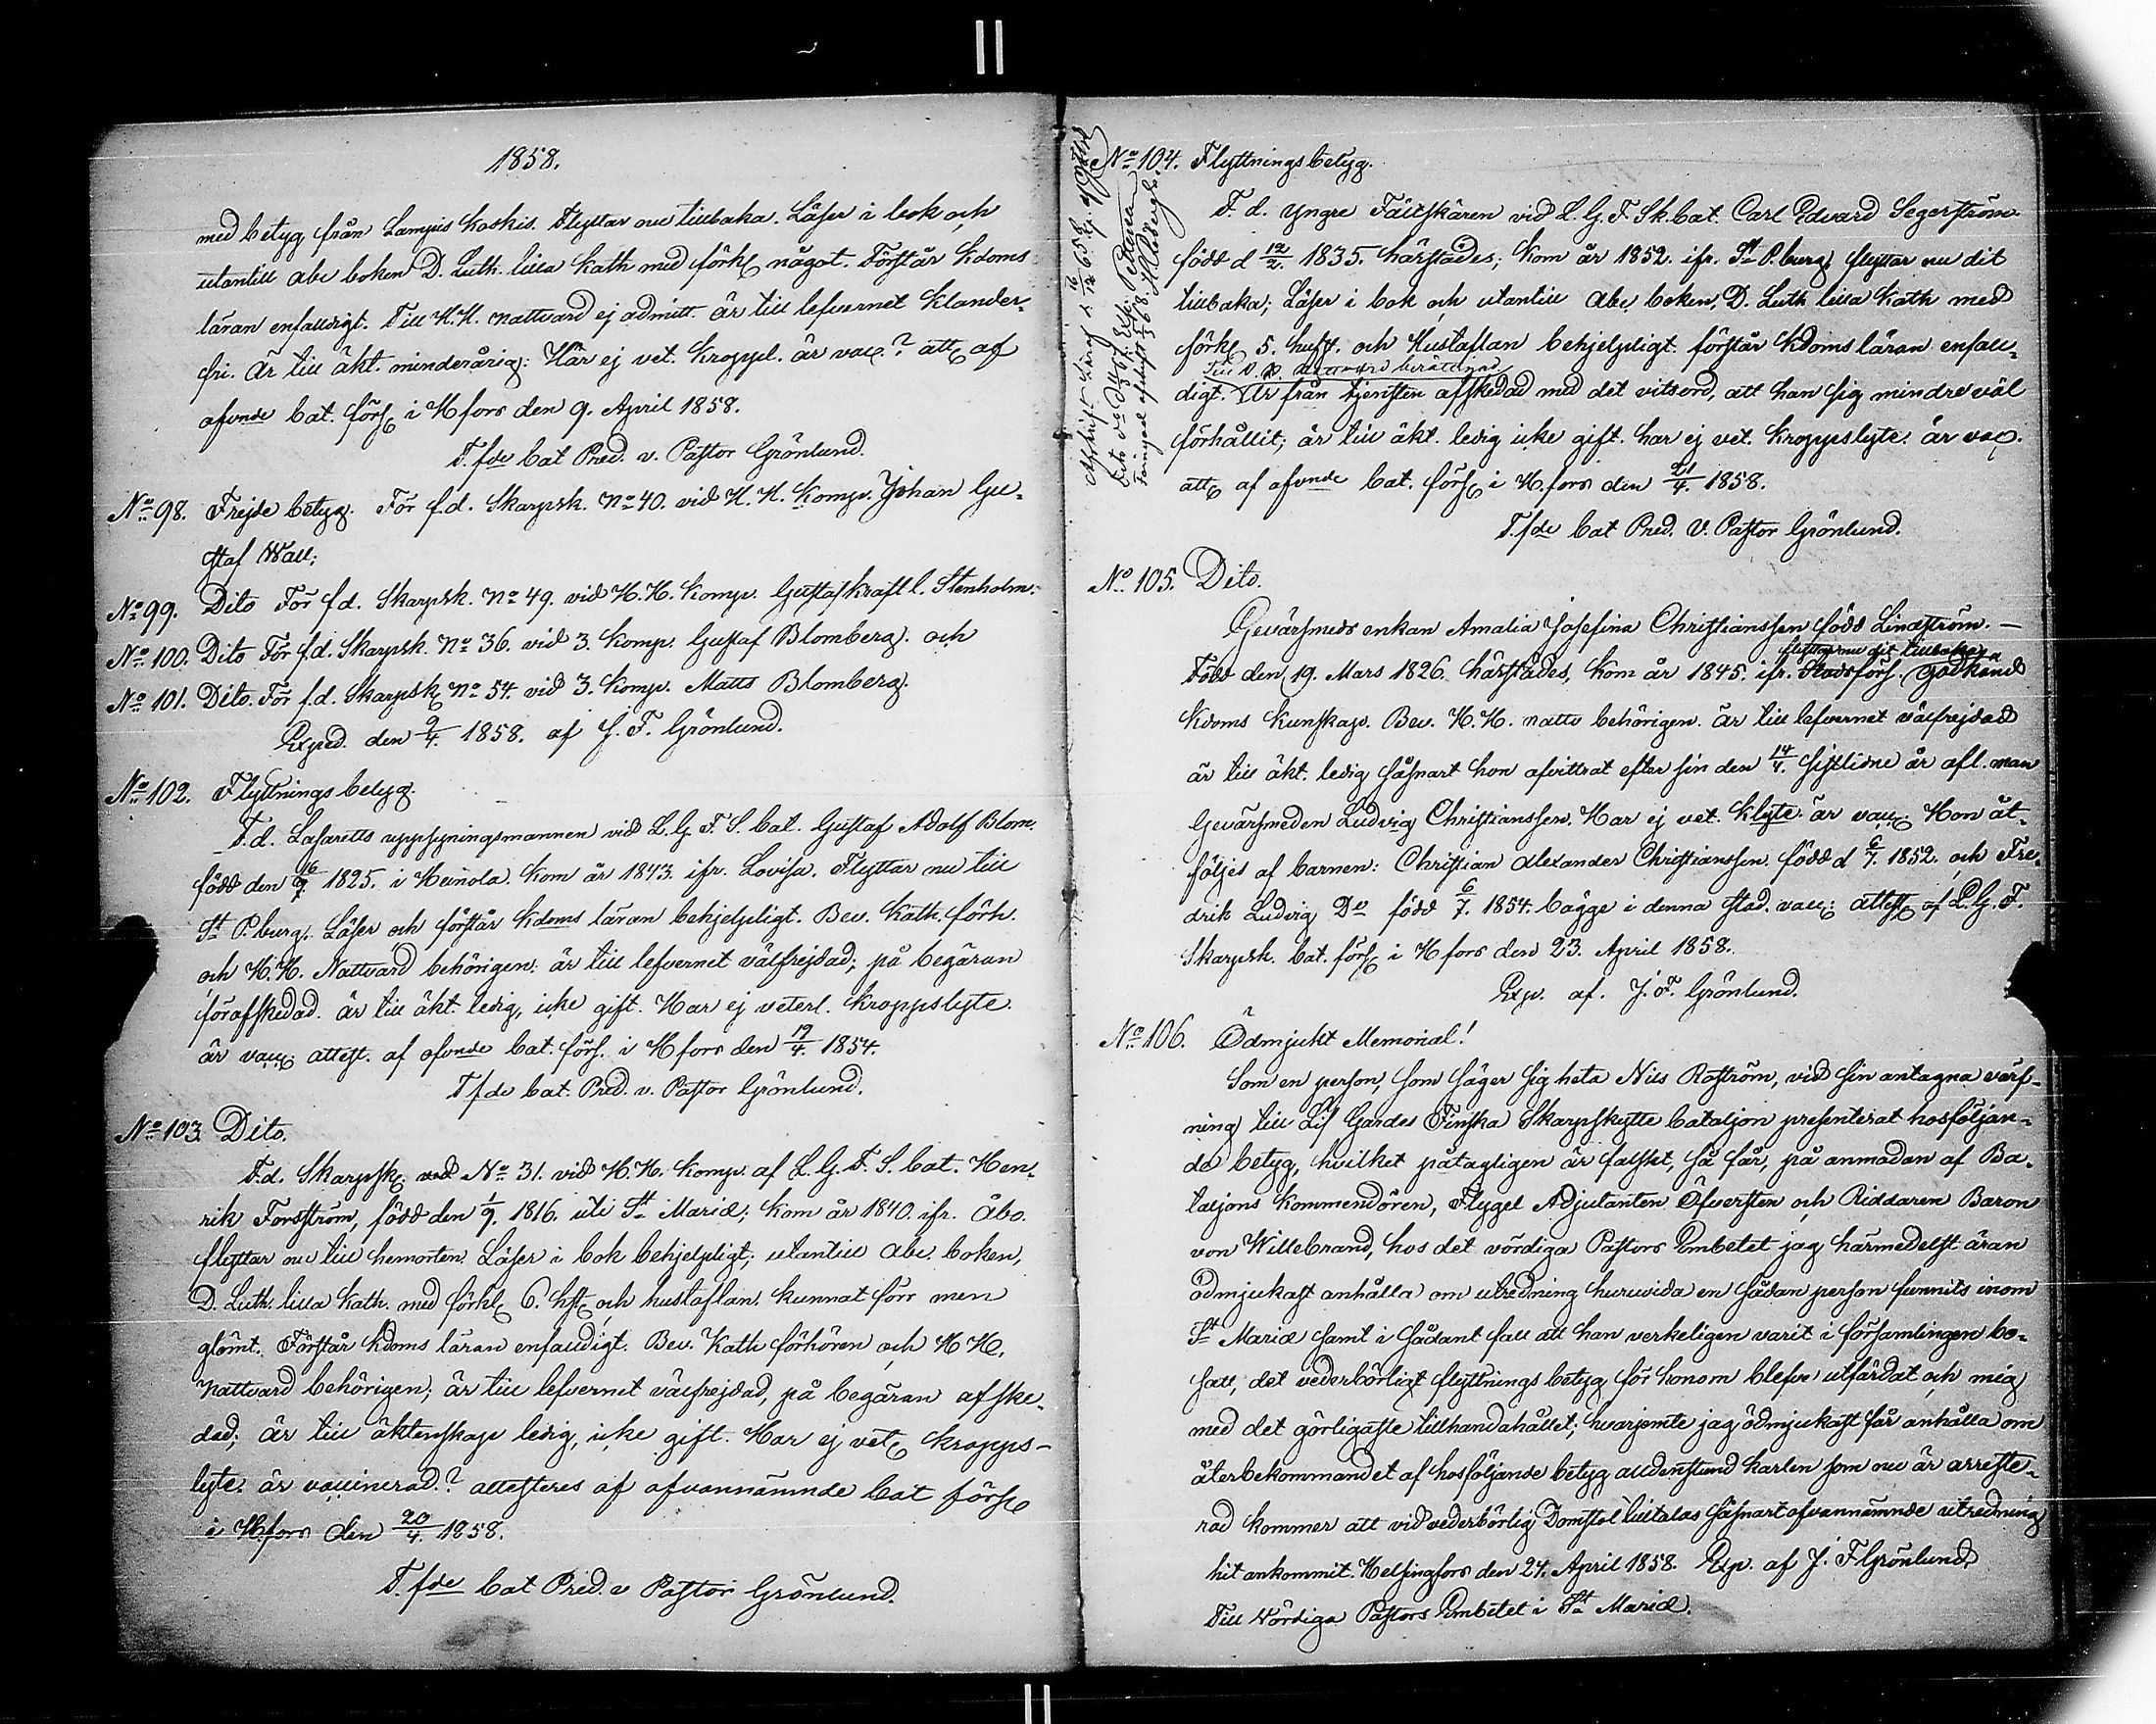 1858.
med betyg från Lampis Koskis. Flyttar nu tillbaka. Läser i bok och
utantill abc boken D. Luth. lilla kath med förkl något. Förstår Kdoms
läran enfalldigt. Till H.H. nattvard ej admitt. är till lefvernet klander-
fri. Är till äkt. minderårig: Här ej vet. Kroppsl. är vac.? att af
ofvnde bat. förs i Hfors den 9. April 1858.
T.fde bat Pred. v. Pastor Grönlund.
No 98. Frejde betyg. För f.d. Skarpsk. No 40. vid H.H. Komp. Johan Gu-
staf Wall;
No 99. Dito För f.d. Skarpsk. No 49. vid H.H. Komp. Gustaf Kraft l. Stenholm.
No 100. Dito För f.d. Skarpsk. No 36. vid 3. Komp. Gustaf Blomberg. och
No 101. Dito. För f.d. Skarpsk No 54. vid 3. Komp. Matts Blomberg.
Exped. den 9/4. 1858. af J. F. Grönlund.
No 102. Flyttnings betyg.
F.d. Lasaretts uppsyningsmannen vid L.G.F.S. bat. Gustaf Adolf Blom.
född den 16/9. 1825. i Heinola. Kom år 1843. ifr. Lovisa. Flyttar nu till
St P.burg. Läser och förstår Kdoms läran behjelpligt. Bev. Kath. förh.
och H.H. Nattvard behörigen: är till lefvernet välfrejdad; på begäran
förafskedad. är till äkt. ledig, icke gift. Har ej veterl. kroppslyte.
är vacc attest. af ofvnde bat. förs. i Hfors den 19/4. 1854.
T fde bat. Pred. v. Pastor Grönlund.
No 103. Dito.
F.d. Skarpsk. vid No 31. vid H.H. Komp. af L.G.F.S. bat. Hen-
rik Forsström, född den 1/9. 1816. uti St Mariæ; Kom år 1840. ifr. Åbo.
flyttar nu till hemorten. Läser i bok behjelpligt; utantill Abc. boken,
D. Luth. lilla Kath. med förkl 6. hft. och hustaflan. kunnat förr men
glömt. Förstår Kdoms läran enfalldigt. Bev. Kath förhören och H H.
nattvard behörigen; är till lefvernet välfrejdad, på begäran afske-
dad; är till äktenskap ledig, icke gift. Har ej vet kropps-
lyte. är vaccinerad.? attesteres af ofvannämnde bat förs
i H.fors den 20/4. 1858.
T.fde bat Pred. v Pastor Grönlund.
No 104. Flyttnings betyg.
F. d. yngre Fältskären vid L. G. F. Sk. bat. Carl Edvard Segerström
född d 12/2. 1835. härstädes; Kom år 1852. ifr. St P.burg, flyttar nu dit
tillbaka; Läser i bok och utantill Abc boken, D. Luth lilla Kath med
förkl 5. huft. och Hustaflan behjelpligt. förstår Kdoms läran enfall-
Till H.H. Nattvard berättigad
digt. Är från tjensten afskedad med det vitsord, att han sig mindre väl
förhållit; är till äkt. ledig icke gift. har ej vet. Kroppslyte. är vac.
att af ofvnde bat. förs i H.fors den 21/4. 1858.
T.fde bat Pred. V. Pastor Grönlund.
No 105. Dito.
Gevärsmeds enkan Amalia Josefina Christianssen född Lindström. —
flyttar nu dit tillbaka
Född den 19. Mars 1826. härstädes, Kom år 1845. ifr. Stadsförs. godkänd
Kdoms kunskap. Bev. H.H. nattv behörigen. är till lefvernet välfrejdad
är till äkt. ledig såsnart hon afvittrat efter sin den 14/4. sistlidne år afl. man
Gevärsmeden Ludvig Christianssen. Har ej vet. Klyte. är vacc: Hon åt-
följes af barnen: Christian Alexander Christianssen född d 6/7. 1852, och Fre-
drik Ludvig Do född 6/7. 1854. bägge i denna stad. vacc: attest af L.G.F.
Skarpsk. bat. förs i Hfors den 23. April 1858.
Exp. af. J. F. Grönlund.
No 106. Ödmjukt Memorial!
Som en person, som säger sig heta Nils Roström, vid sin antagna värf-
ning till Lif Gardes Finska Skarpskytte bataljon presenterat hosföljan-
de betyg, hvilket påtagligen är falskt, så får, på anmodan af Ba-
taljons Kommendören, Flygel Adjutanten Öfversten och Riddaren Baron
von Willebrand, hos det vördiga Pastors Embetet jag härmedelst äran
ödmjukast anhålla om utredning huruvida en sådan person funnits inom
St Mariæ samt i sådant fall att han verkeligen varit i församlingen bo-
satt, det vederbörligt flyttnings betyg för honom blefve utfärdat och mig
med det görligaste tillhandahållet; hvarjemte jag ödmjukast får anhålla om
återbekommandet af hosföljande betyg alldenstund karlen som nu är arreste-
rad kommer att vid vederbörlig Domstol tilltalas såsnart ofvannämnde utredning
hit ankommit. Helsingfors den 24. April 1858. Exp. af J. F Grönlund.
Till Wördiga Pastors Embetet i St Mariæ.